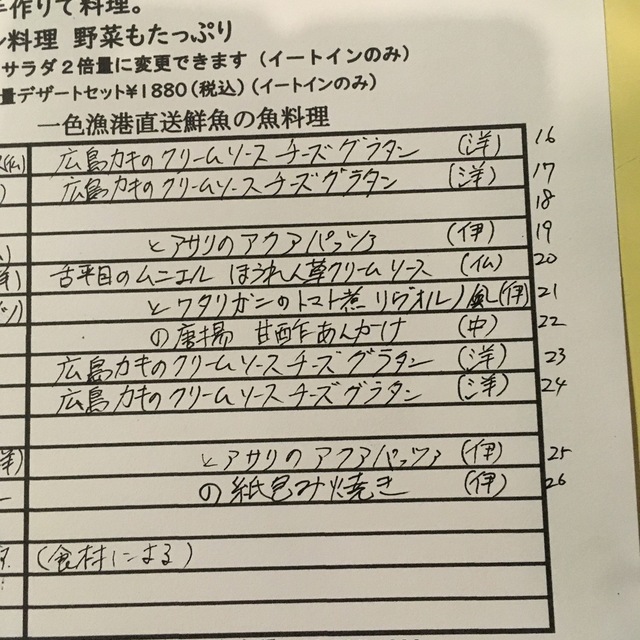 手作りて料理。
ン料理 野菜もたっぷり
サラダ2倍量に変更できます (イートインのみ)
量デザートセット¥1880(税込)(イートインのみ)
一色漁港直送鮮魚の魚料理
広島カキのクリームソース チーズグラタン (洋) 16
広島カキのクリームソースチーズグラタン (洋) 17
18
とアサリのアクアパッツァ (伊) 19
舌平目のムニエル ほうれん草クリームソース (仏) 20
とワタリガニのトマト煮 リヴォルノ風(伊) 21
の唐揚 甘酢あんかけ (中) 22
広島カキのクリームソースチーズグラタン (洋) 23
広島カキのクリームソースチーズグラタン (洋) 24
とアサリのアクアパッツァ (伊) 25
の紙包み焼き (伊) 26
(食材による)